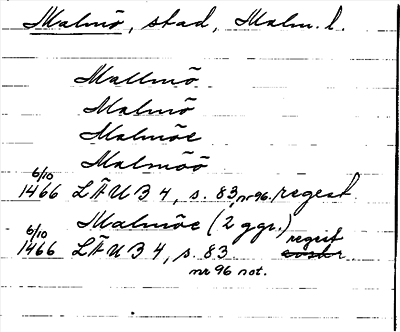 Malmö, stad, Malm. l.
Mallmö
Malmö
Malmöe
Malmöö
6/10
1466 LÄUB 4, s. 83, nr 96. regest
Malmöe (2 ggr.)
6/10 regest
1466 LÄUB 4, s. 83
nr 96 not.